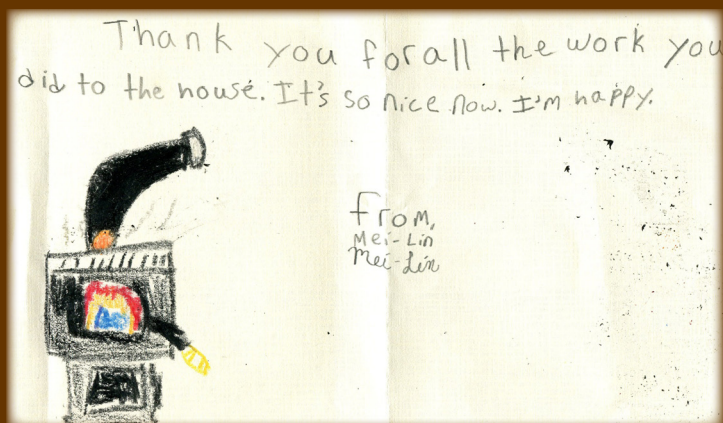 Thank you for all the work you
did to the house. It's so nice now. I'm happy.
from,
Mei-Lin
Mei-Lin